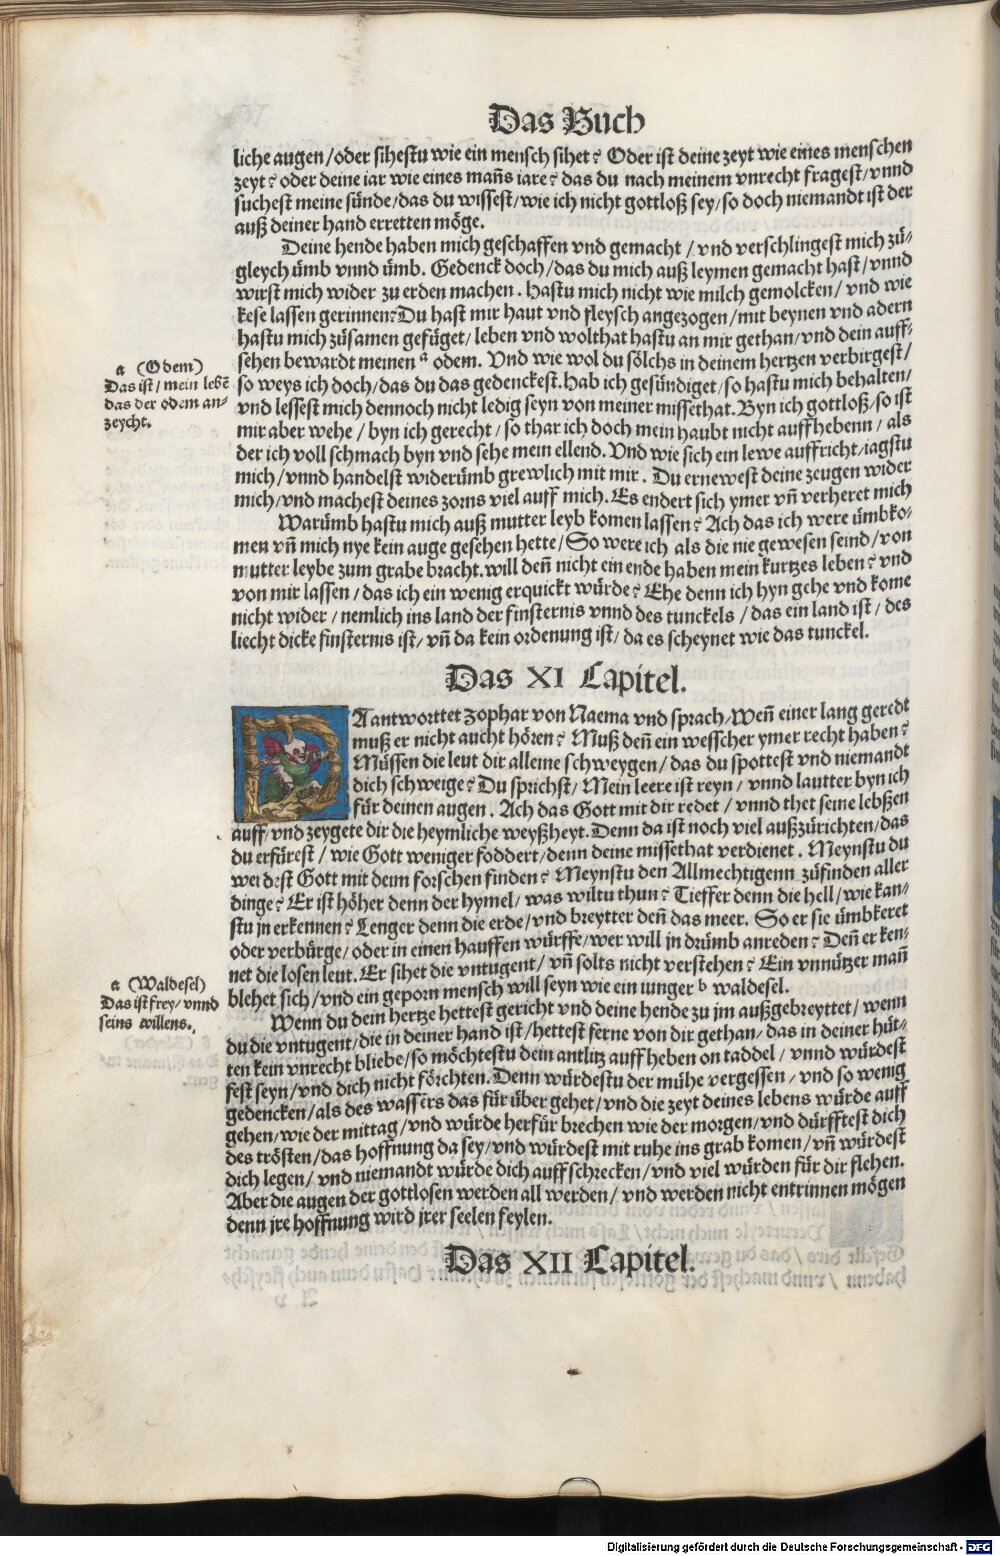 Das Buch
liche augen/oder sihestu wie ein mensch sihet? Oder ist deine zeyt wie eines menschen
zeyt? oder deine iar wie eines mañs iare? das du nach meinem vnrecht fragest/vnnd
suchest meine sünde/das du wissest/wie ich nicht gottloß sey/so doch niemandt ist der
auß deiner hand erretten möge.
Deine hende haben mich geschaffen vnd gemacht/vnd verschlingest mich zů-
gleych ümb vnnd ümb. Gedenck doch/das du mich auß leymen gemacht hast/vnnd
wirst mich wider zu erden machen. hastu mich nicht wie milch gemolcken/vnd wie
kese lassen gerinnen? Du hast mir haut vnd fleysch angezogen/mit beynen vnd adern
hastu mich zůsamen gefüget/leben vnd wolthat hastu an mir gethan/vnd dein auff-
sehen bewardt meinen a odem. Vnd wie wol du sölchs in deinem hertzen verbirgest/
so weys ich doch/das du das gedenckest. Hab ich gesündiget/so hastu mich behalten/
vnd lessest mich dennoch nicht ledig seyn von meiner missethat. Byn ich gottloß/so ist
mir aber wehe/byn ich gerecht/so thar ich doch mein haubt nicht auffhebenn/als
der ich voll schmach byn vnd sehe mein ellend. Vnd wie sich ein lewe auffricht/iagstu
mich/vnnd handelst widerümb grewlich mit mir. Du ernewest deine zeugen wider
mich/vnd machest deines zorns viel auff mich. Es endert sich ymer vñ verheret mich
Warümb hastu mich auß mutter leyb komen lassen? Ach das ich were ümbko-
men vñ mich nye kein auge gesehen hette/So were ich als die nie gewesen seind/von
mutter leybe zum grabe bracht. will deñ nicht ein ende haben mein kurtzes leben? vnd
von mir lassen/das ich ein wenig erquickt würde? Ehe denn ich hyn gehe vnd kome
nicht wider/nemlich ins land der finsternis vnnd des tunckels/das ein land ist/des
liecht dicke finsternis ist/vñ da kein ordenung ist/da es scheynet wie das tunckel.
a (Odem)
Das ist/mein lebē
das der odem an-
zeycht.
Das XI Capitel.
DA antworttet Zophar von Naema vnd sprach/Weñ einer lang geredt
muß er nicht aucht hören? Muß deñ ein wesscher ymer recht haben?
Müssen die leut dir alleine schweygen/das du spottest vnd niemandt
dich schweige? Du sprichst/Mein leere ist reyn/vnnd lautter byn ich
für deinen augen. Ach das Gott mit dir redet/vnnd thet seine lebßen
auff/vnd zeygete dir die heymliche weyßheyt. Denn da ist noch viel außzůrichten/das
du erfürest/wie Gott weniger foddert/denn deine missethat verdienet. Meynstu du
werdest Gott mit deim forschen finden? Meynstu den Allmechtigenn zůfinden aller
dinge? Er ist höher denn der hymel/was wiltu thun? Tieffer denn die hell/wie kan-
stu jn erkennen? Lenger denn die erde/vnd breytter deñ das meer. So er sie ümbkeret
oder verbürge/oder in einen hauffen würffe/wer will jn drümb anreden? Deñ er ken-
net die losen leut. Er sihet die vntugent/vñ solts nicht verstehen? Ein vnnützer mañ
blehet sich/vnd ein geporn mensch will seyn wie ein iunger b waldesel.
Wenn du dein hertze hettest gericht vnd deine hende zu jm außgebreyttet/wenn
du die vntugent/die in deiner hand ist/hettest ferne von dir gethan/das in deiner hüt-
ten kein vnrecht bliebe/so möchtestu dein antlitz auffheben on taddel/vnnd würdest
fest seyn/vnd dich nicht förchten. Denn würdestu der mühe vergessen/vnd so wenig
gedencken/als des wassers das für über gehet/vnd die zeyt deines lebens würde auff
gehen/wie der mittag/vnd würde herfür brechen wie der morgen/vnd dürfftest dich
des trösten/das hoffnung da sey/vnd würdest mit ruhe ins grab komen/vñ würdest
dich legen/vnd niemandt würde dich auffschrecken/vnd viel würden für dir flehen.
Aber die augen der gottlosen werden all werden/vnd werden nicht entrinnen mögen
denn jre hoffnung wird jrer seelen feylen.
a (Waldesel)
Das ist frey/vnnd
seins willens.
Das XII Capitel.
Digitalisierung gefördert durch die Deutsche Forschungsgemeinschaft - DFG